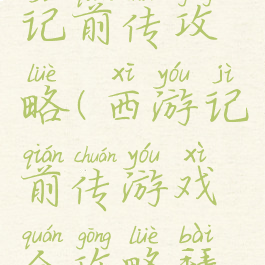 记前传攻
lüè xī yóu jì
略(西游记
qián chuán yóu xì
前传游戏
quán gōng lüè bài
全攻略